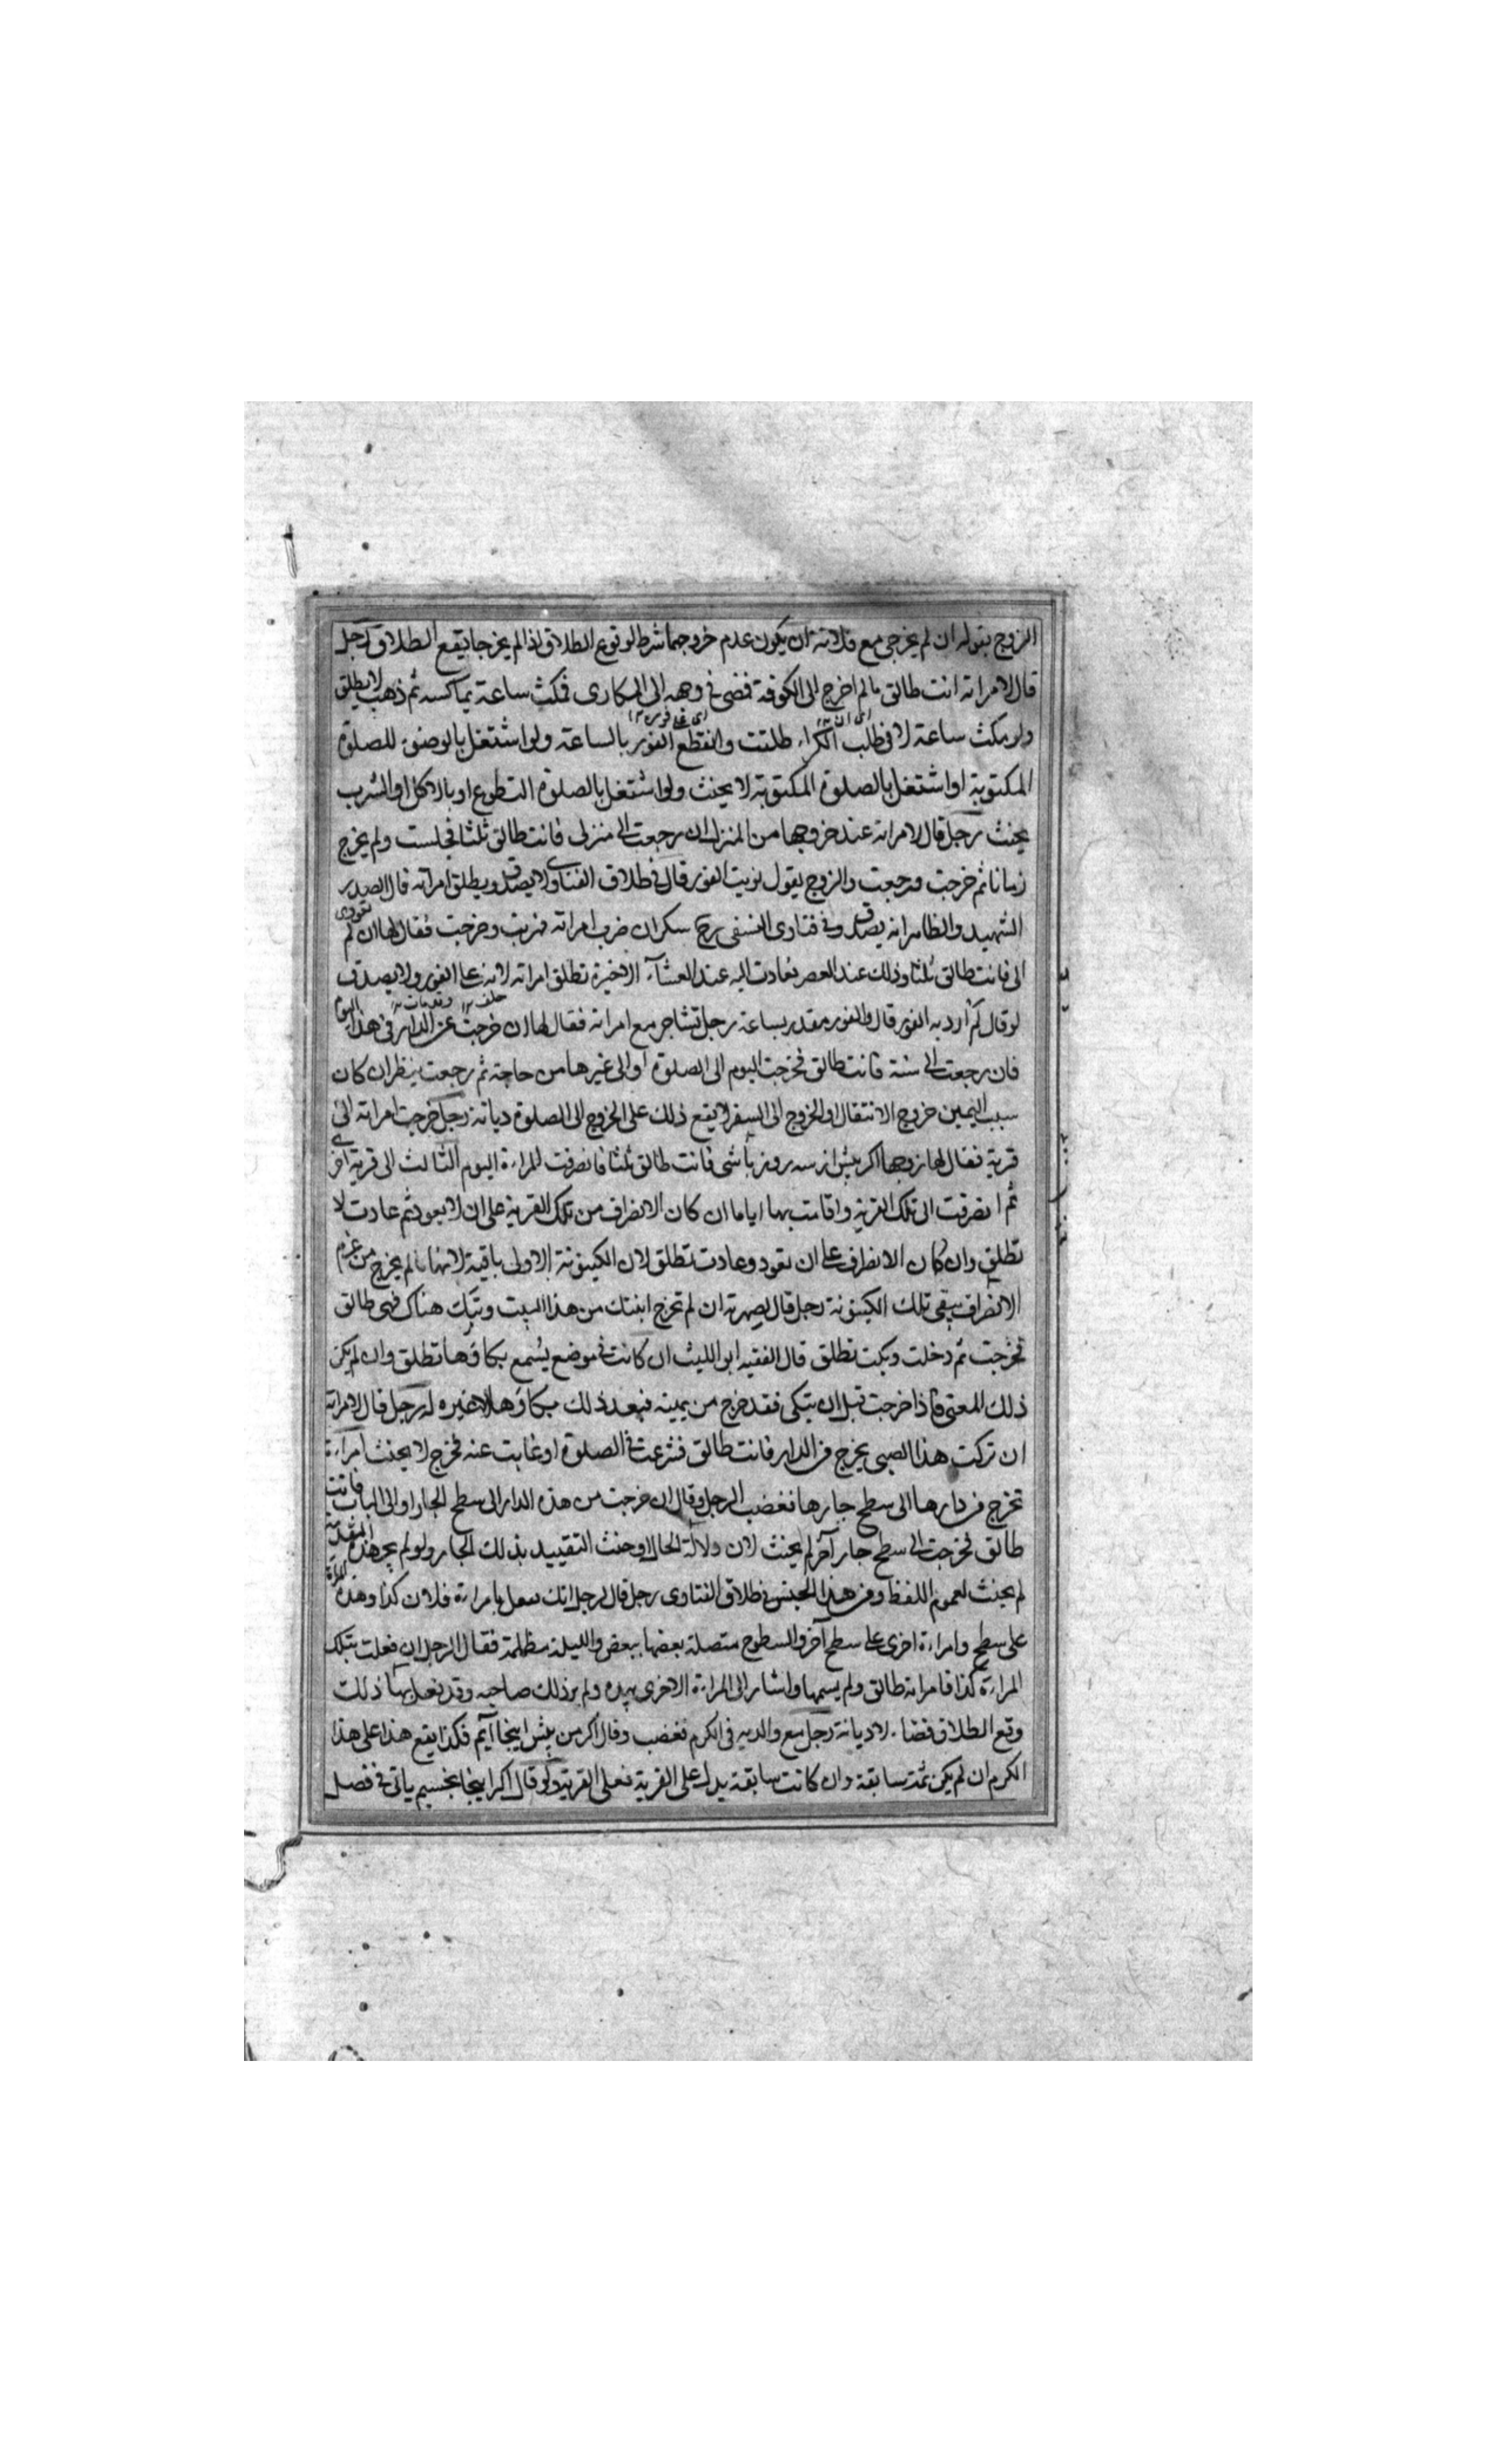 الزوج بقوله ان لم يخرجى مع فلانة ان يكون عدم خروجهما شرطا لوقوع الطلاق اذا لم يخرجا يقع الطلاق رجل
قال لامراته انت طالق ما لم اخرج الى الكوفة فمضى فى وجهه الى المكارى فمكث ساعة يماكسه ثم ذهب لا يطلق
ولو مكث ساعة لا فى طلب الكراء طلقت وانقطع الفور بالساعة ولو اشتغل بالوضوء للصلوة
المكتوبة او اشتغل بالصلوة المكتوبة لا يحنث ولو اشتغل بالصلوة التطوع او بالاكل او الشرب
يحنث رجل قال لامراته عند خروجها من المنزل ان رجعت الى منزلى فانت طالق ثلثا فجلست ولم يخرج
زمانا ثم خرجت ورجعت والزوج يقول نويت الفور قال فى طلاق الفتاوى لا يصدق ويطلق امراته قال الصدر
الشهيد والظاهر انه يصدق وفى فتاوى النسفى رح سكران ضرب امراته فهربت وخرجت فقال لها ان لم تعودى
الى فانت طالق ثلثا وذلك عند العصر فعادت اليه عند العشاء الاخيرة تطلق امراته لانه على الفور ولا يصدق
لو قال لم ارد به الفور قال والفور مقدر بساعة رجل تشاجر مع امراته فقال لها ان خرجت من الدار فى هذا اليوم
فان رجعت الى سنة فانت طالق فخرجت اليوم الى الصلوة او الى غيرها من حاجة ثم رجعت ينظر ان كان
سبب اليمين خروج الانتقال او الخروج الى السفر لا يقع ذلك على الخروج الى الصلوة ديانة رجل خرجت امراته الى
قرية فقال لها زوجها اكر بيش از سه روز باشى فانت طالق ثلثا فانصرفت المراءة اليوم الثالث الى قرية اخرى
ثم انصرفت الى تلك القرية واقامت بها اياما ان كان الانصراف من تلك القرية على ان لا يعود ثم عادت لا
تطلق وان كان الانصراف على ان تعود وعادت تطلق لان الكينونة الاولى باقية لانها ما لم يخرج من عزم
الانصراف يبقى تلك الكينونة رجل قال لصهرته ان لم تخرج ابنتك من هذا البيت وتبك هناك فهى طالق
فخرجت ثم دخلت وبكت تطلق قال الفقيه ابو الليث ان كانت فى موضع يسمع بكاؤها تطلق وان لم يكن
ذلك المعنى فاذا خرجت قبل ان يبكى فقد خرج من يمينه فبعد ذلك بكاؤها لا غيره له رجل قال لامراته
ان تركت هذا الصبى يخرج من الدار فانت طالق فشرعت فى الصلوة او غابت عنه فخرج لا يحنث امراءة
تخرج من دارها الى سطح جارها فغضب الرجل وقال ان خرجت من هذه الدار الى سطح الجار او الى الباب فانت
طالق فخرجت الى سطح جار آخر لم يحنث لان دلالة الحال اوجبت التقييد بذلك الجار ولو لم يجر هذه المقدمة
لم يحنث لعموم اللفظ ومن هذا الجنس فى طلاق الفتاوى رجل قال لرجل انك تفعل بامراءة فلان كذا وهذه المراة
على سطح وامراءة اخرى على سطح آخر والسطوح متصلة بعضها ببعض والليلة مظلمة فقال الرجل ان فعلت بتلك
المراءة كذا فامراته طالق ولم يسمها واشار الى المراءة الاخرى بيده ولم ير ذلك صاحبه وقد فعل بها ذلك
وقع الطلاق قضاء لا ديانة رجل مع والديه فى الكرم فغضب وقال اكر من بيش اينجا آيم فكذا يقع هذا على هذا
الكرم ان لم يكن ثمة سابقة وان كانت سابقة يدل على القرية فعلى القرية ولو قال اكر اينجا بخسبم ياتى فى فصل